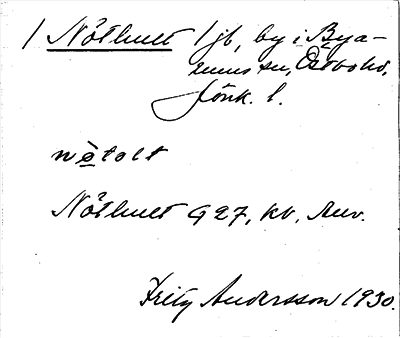 / Nöthult / jb, by i Bya-
rums sn, Östbo hd,
Jönk. l.
nøtolt
Nöthult G 27, kv. Auv.
Fritz Andersson 1930.